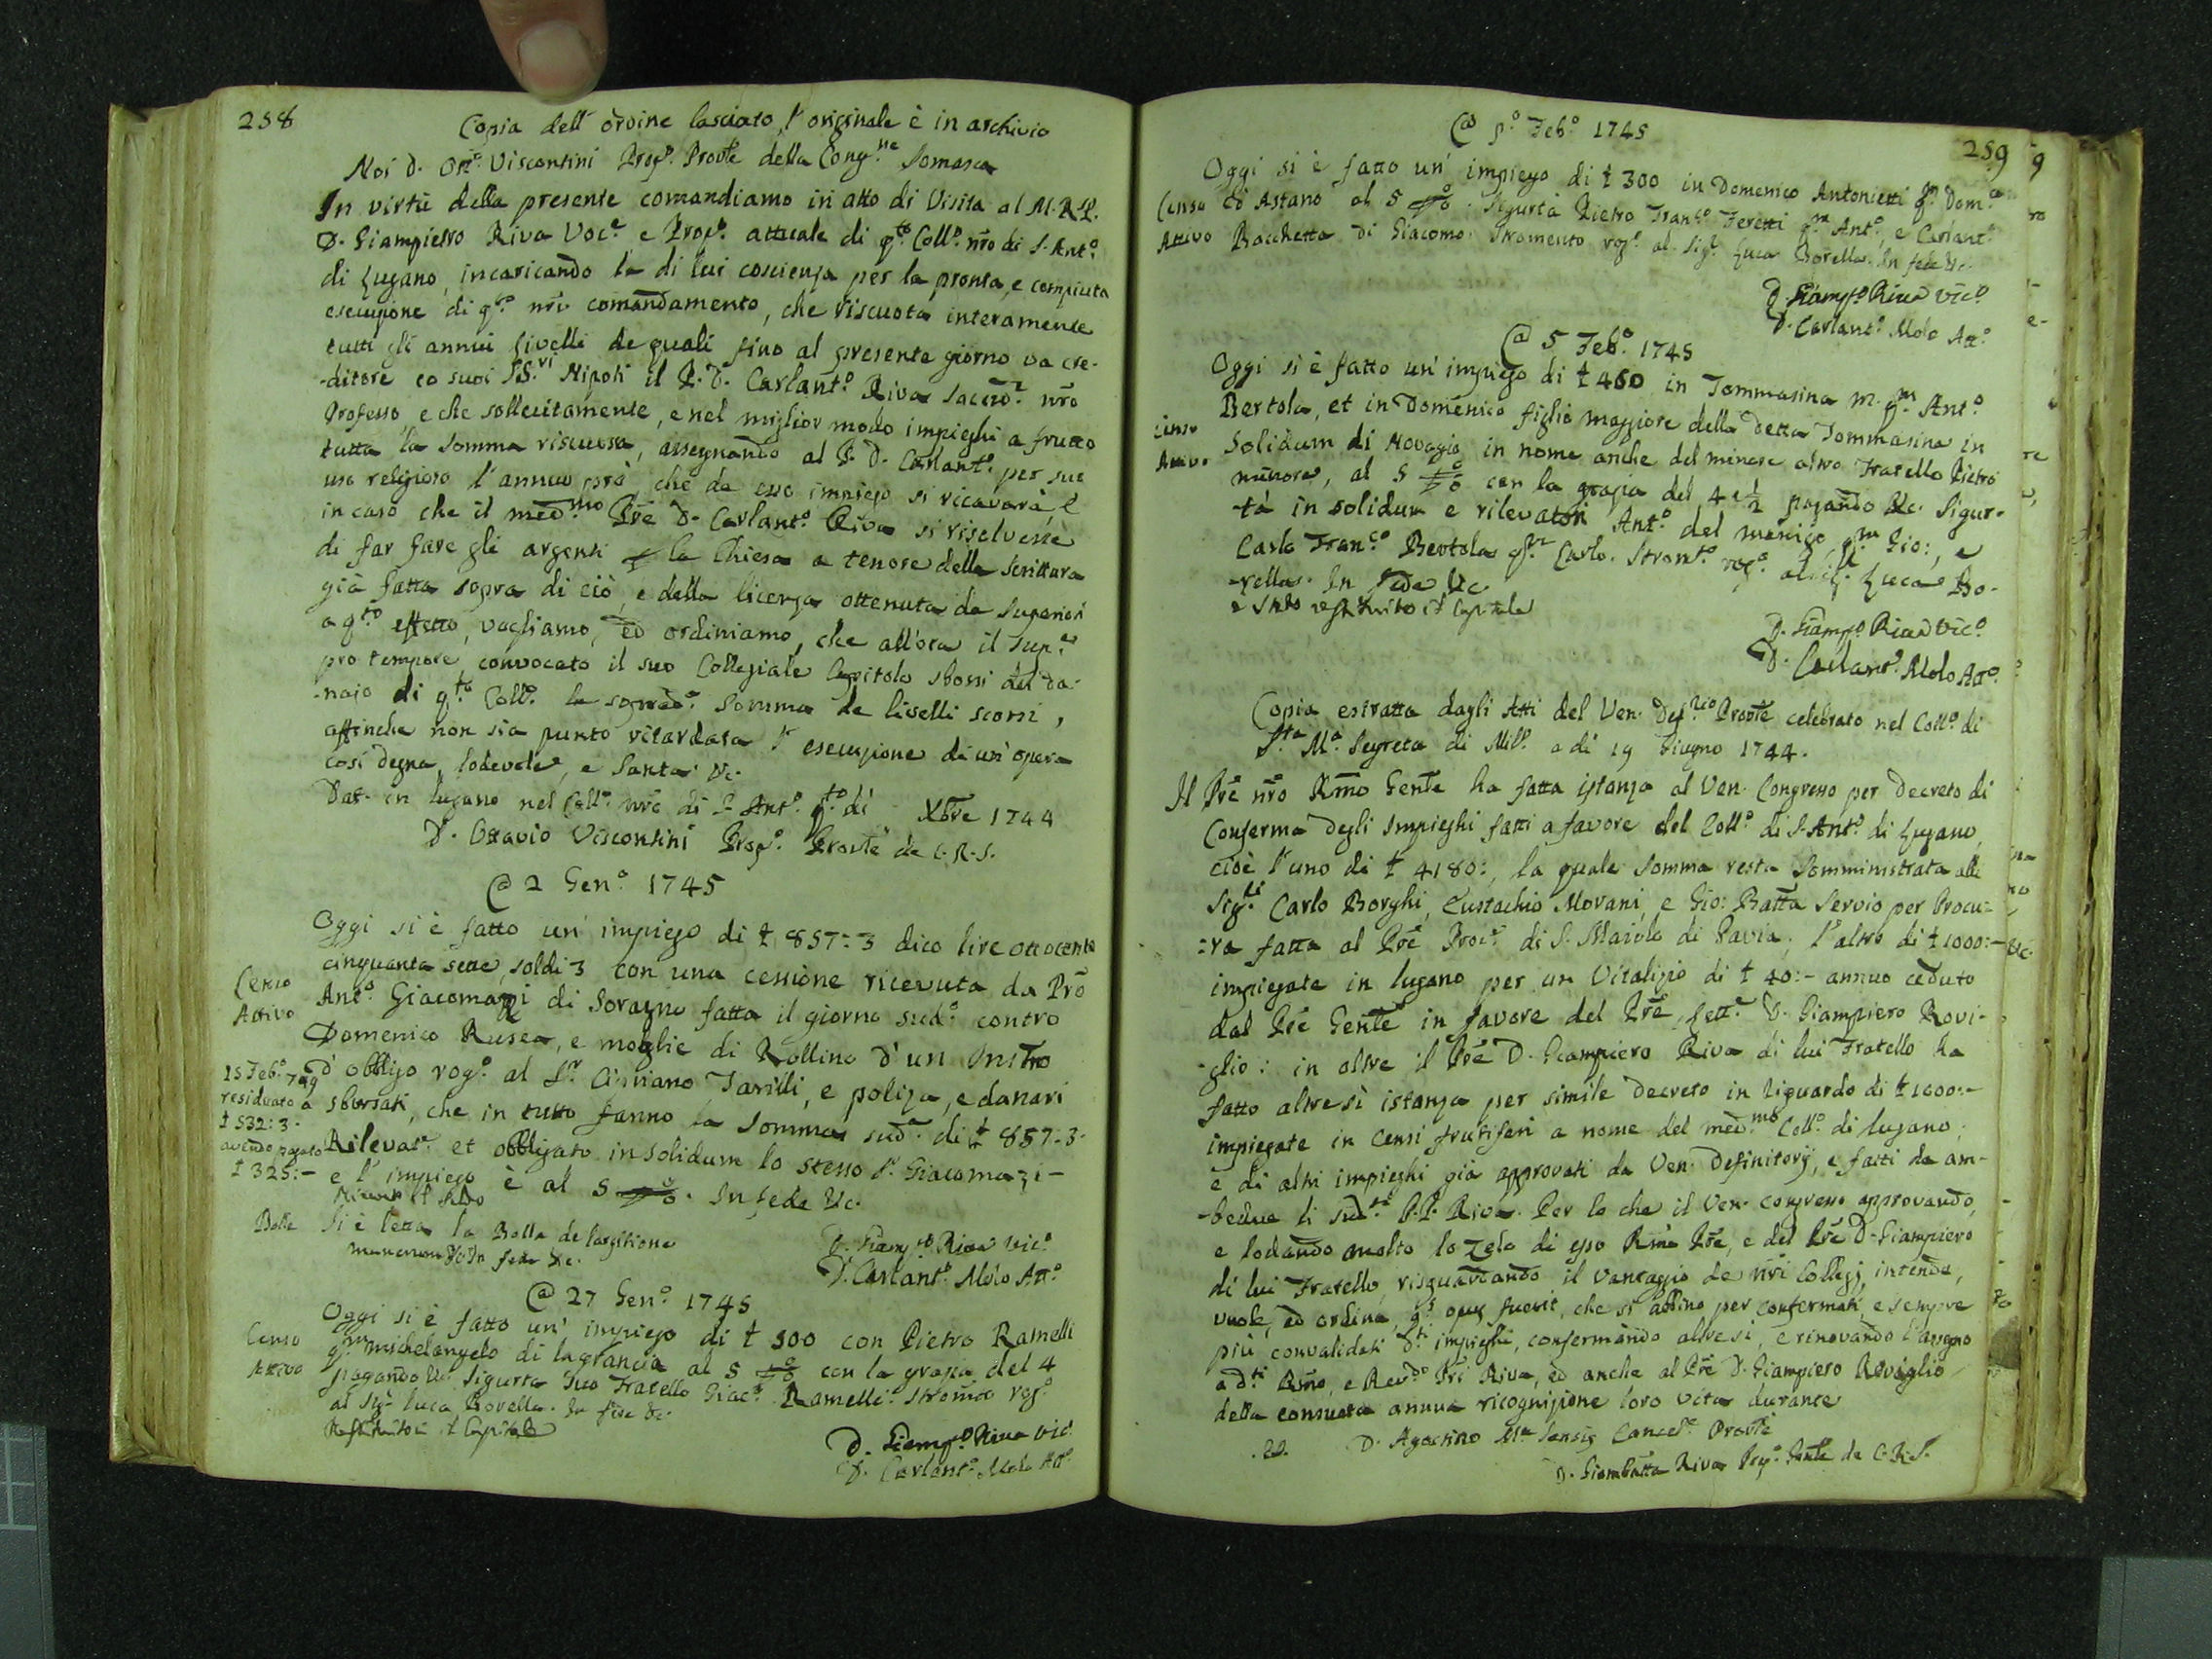 258
Copia dell' ordine lasciato, l' originale è in archivio
Noi D. Ott.º Viscontini Prep.º Provle della Cong.ne Somasca
In virtù della presente comandiamo in atto di Visita al M.R.P.
D. Giampietro Riva Voc.e e Prep.º attuale di q.to Coll.º nrõ di S. Ant.º
di Lugano, incaricando la di lui coscienza per la pronta, e compiuta
esecuzione di q.to nrõ comandamento, che riscuota interamente
tutti gli annui livelli de quali fino al presente giorno va cre-
-ditore co suoi SS.vi Nipoti il P. D. Carlant.º Riva Sacerd.e nrõ
Professo, e che sollecitamente, e nel miglior modo impieghi a frutto
tutta la somma riscuossa, assegnando al P. D. Carlant.º per suo
uso religioso l' annuo che da esso impiego si ricavarà, e
in caso che il med.mo Prẽ D. Carlant.º Riva si risolvesse
di far fare gli argenti p la Chiesa a tenore della scrittura
già fatta sopra di ciò, e della licenza ottenuta da Superiori
a q.to effetto, vogliamo, ed ordiniamo, che all'ora il Sup.e
pro tempore, convocato il suo Collegiale Capitolo sborsi del da-
-najo di q.to Coll.º la sopradª somma de livelli scorsi,
affinche non sia punto ritardata l' esecuzione di un' opera
così degna, lodevole, e Santa &c.
Dat. in Lugano nel Coll.º nrõ di S. Ant.º q.to dì Xbre 1744
D. Ottavio Viscontini Prep.º Provle de C. R. S.
@ 2 Gen.º 1745
Oggi si è fatto un' impiego di ł 857:3 dico lire ottocento
cinquanta sette, soldi 3 con una cessione ricevuta da Prõ
Censo
Attivo
Ant.º Giacomazzi di Soragno fatta il giorno sud.º contro
Domenico Rusca, e moglie di Rollino d' un Instro
d' obbligo rog.º al S.r Cipriano Tarilli, e poliza, e danari
15 Feb.º 749
residuato a
ł 532:3.
avendo pagato
ł 325:-
sborsati, che in tutto fanno la Somma sud.ª di ł 857:3.
Rilevat.e et obbligato in solidum lo stesso S.r Giacomazi-
e l' impiego è al 5 p%. In fede &c.
Bolla
Si è letta la Bolla de largitione
munerum &c In fede &c.
D. Giamp.º Riva Vic.º
D. Carlant.º Molo Att.º
@ 27 Gen.º 1745
Censo
Attivo
Oggi si è fatto un' impiego di ł 500 con Pietro Ramelli
q.m Michelangelo di lagrancia al 5 p% con la grazia del 4
pagando &c. Sigurtà suo Fratello Giac.º Ramelli. Stromto rog.º
al Sig.r Luca Borella. In fede &c.
Restituito il Capitale
D. Giamp.º Riva Vic.º
D. Carlant.º Molo Att.º
259
@ P.º Feb.º 1745
Oggi si è fatto un' impiego di ł 300 in Domenico Antonietti q.m Dom.co
Censo
Attivo
di Astano al 5 p%. Sigurtà Pietro Fran.co Feretti q.m Ant.º, e Carlant.º
Bacchetta di Giacomo. Stromento rog.º al Sig.r Luca Borella. In fede &c.
D. Giamp.º Riva Vic.º
D. Carlant.º Molo Att.º
@ 5 Feb.º 1745
Oggi si è fatto un' impiego di ł 460 in Tommasina m. q.m Ant.º
Bertola, et in Domenico figlio maggiore della detta Tommasina in
Censo
Attivo
Solidum di Novaggio in nome anche del minore altro Fratello Pietro
minore, al 5 p% con la grazia del 4 e ½ pagando &c. Sigur-
-tà in solidum e rilevatori Ant.º del q.m Gio:, e
Carlo Fran.co Bertola q.m Carlo. Strom.to rog.º al Sig.r Luca Bo-
-rella. In fede &c.
è stato restituito il Capitale
D. Giamp.º Riva Vic.º
D. Carlant.º Molo Att.º
Copia estratta dagli Atti del Ven. Def.rio Provle celebrato nel Coll.º di
S.ta M.ª Segreta di Mil.º a dì 19 Giugno 1744.
Il Prẽ nrõ Rmo Genle ha fatta istanza al Ven. Congresso per decreto di
Conferma degli Impieghi fatti a favore del Coll.º di S. Ant.º di Lugano,
cioè l' uno di ł 4180:, la quale somma resta somministrata alli
Sig.ri Carlo Borghi, Eustachio Morani, e Gio: Batta Servio per Procu-
:ra fatta al Prẽ Proc.e di S. Maiolo di Pavia, l' altro di ł 1000:-
impiegate in Lugano per un Vitalizio di ł 40:- annuo ceduto
dal Prẽ Genle in favore del Prẽ Lett.e D. Giampiero Rovi-
-glio: in oltre il Prẽ D. Giampiero Riva di lui Fratello ha
fatto altresì istanza per simile Decreto in riguardo di ł 1600:-
impiegate in Censi frutiferi a nome del med.mo Coll.º di Lugano,
e di altri impieghi già approvati da Ven. Definitorj, e fatti da am-
-bedue li sud.ti P.P. Riva. Per lo che il Ven. Congresso approvando,
e lodando molto lo zelo di esso Rmo Prẽ, e del Prẽ D. Giampiero
di lui Fratello, risguardando il vantaggio de nri Collegj, intende,
vuole, ed ordina, q.s opus fuerit, che si abbino per confermati, e sempre
più convalidati d.ti impieghi, confermando altresì, e rinovando l' assegno
a d.ti Rmo, e Rev.do Pri Riva, ed anche al Prẽ D. Giampiero Roviglio
della consueta annua ricognizione loro vita durante
D. Agostino Mª Sensis Cancel.e Provle
D. Giambatta Riva Prep.º Genle de C. R. S.